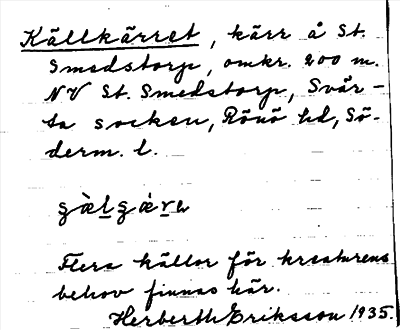 Källkärret, kärr å St.
Smedstorp, omkr. 200 m.
NV St. Smedstorp, Svär-
ta socken, Rönö hd, Sö-
derm. l.
Flera källor för kreaturens
behov finnas här.
Herberth Eriksson 1935.